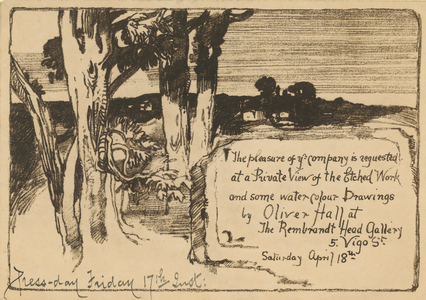 The pleasure of yr company is requested
at a Private View of the Etched Work
and some water colour Drawings
by Oliver Hall at
The Rembrandt Head Gallery
5. Vigo St.
Saturday April 18th
Press-day Friday 17th Inst: